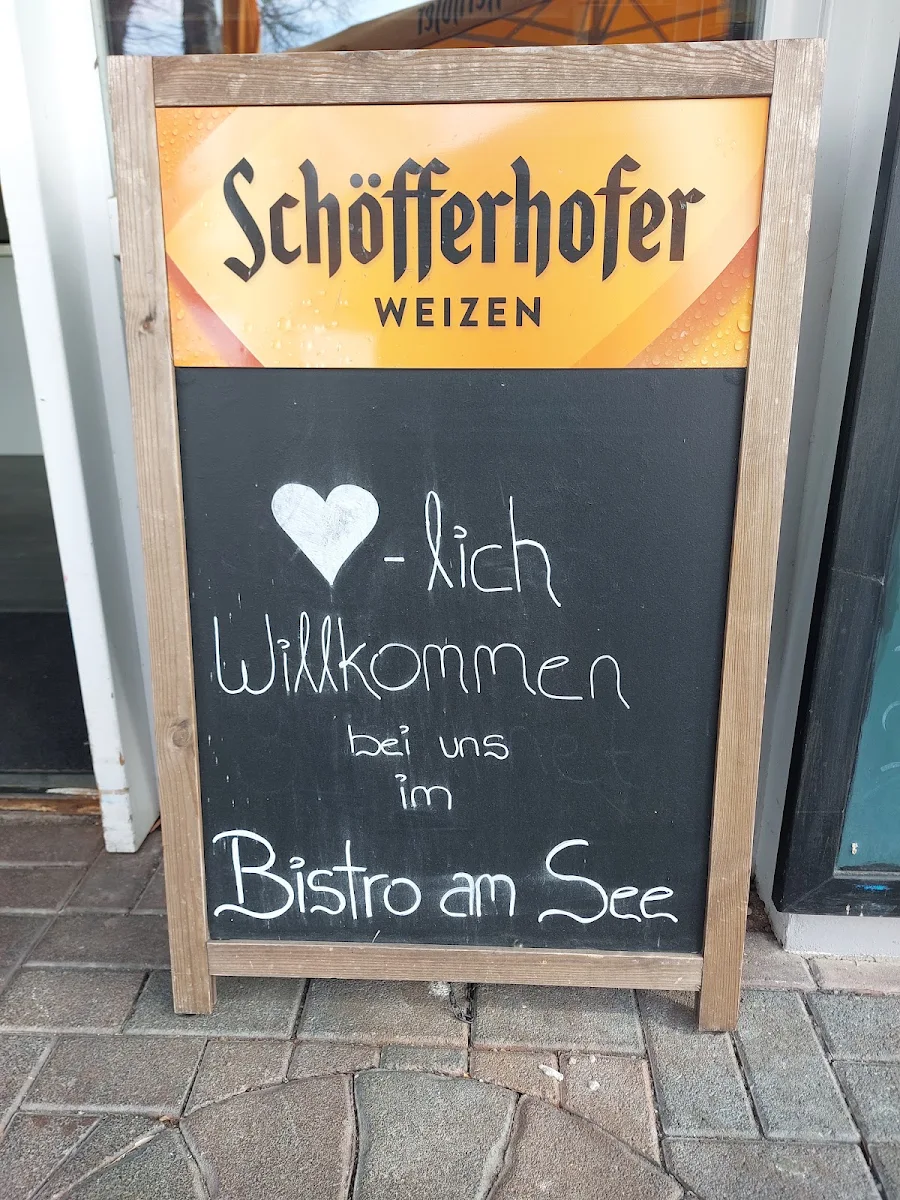 Schöfferhofer
WEIZEN
♥-lich
Willkommen
bei uns
im
Bistro am See